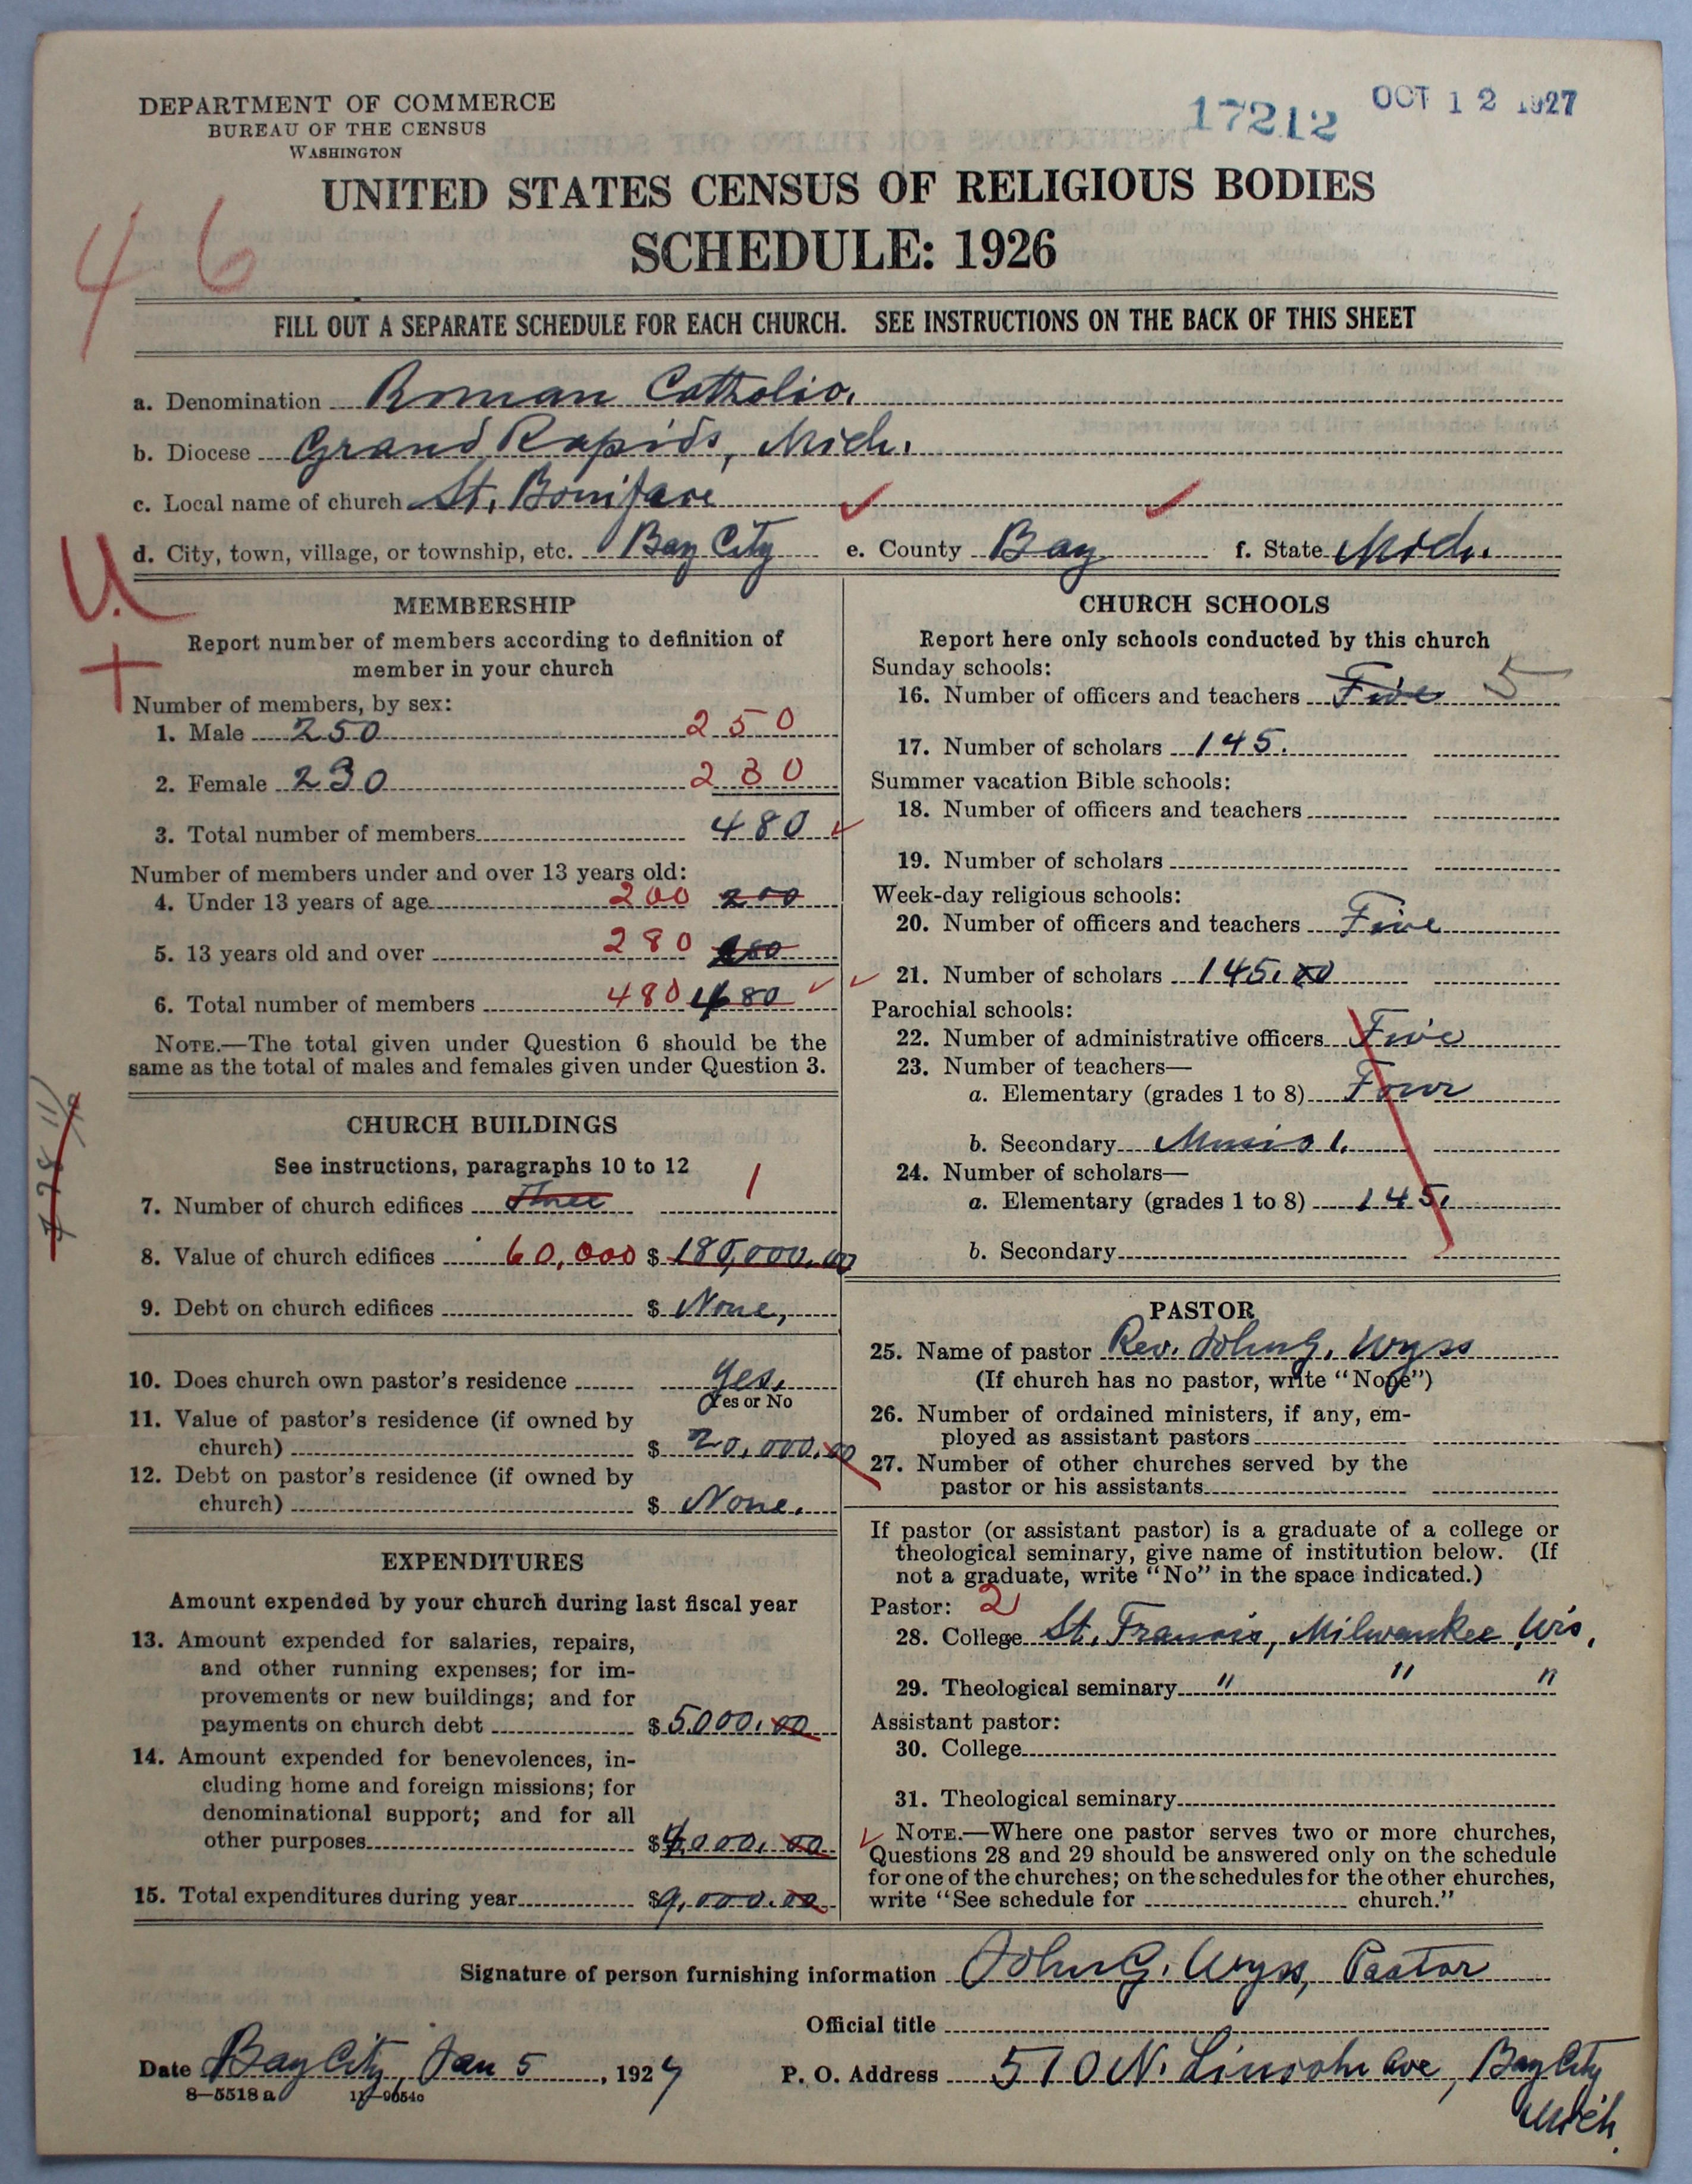 DEPARTMENT OF COMMERCE
BUREAU OF THE CENSUS
WASHINGTON
17212 OCT 12 1927
UNITED STATES CENSUS OF RELIGIOUS BODIES
SCHEDULE: 1926
46
FILL OUT A SEPARATE SCHEDULE FOR EACH CHURCH. SEE INSTRUCTIONS ON THE BACK OF THIS SHEET
a. Denomination Roman Catholic.
b. Diocese Grand Rapids, Mich.
c. Local name of church St. Boniface
d. City, town, village, or township, etc. Bay City e. County Bay f. State Mich.
U.
MEMBERSHIP
Report number of members according to definition of
member in your church
Number of members, by sex:
1. Male 250 250
2. Female 230 230
3. Total number of members 480
Number of members under and over 13 years old:
4. Under 13 years of age 200 200
5. 13 years old and over 280 280
6. Total number of members 480 480
NOTE.—The total given under Question 6 should be the
same as the total of males and females given under Question 3.
CHURCH BUILDINGS
See instructions, paragraphs 10 to 12
7. Number of church edifices Three 1
8. Value of church edifices 60,000 $ 180,000.00
9. Debt on church edifices $ None,
10. Does church own pastor's residence Yes.
Yes or No
11. Value of pastor's residence (if owned by
church) $ 20,000.00
12. Debt on pastor's residence (if owned by
church) $ None.
EXPENDITURES
Amount expended by your church during last fiscal year
13. Amount expended for salaries, repairs,
and other running expenses; for im-
provements or new buildings; and for
payments on church debt $ 5000.00
14. Amount expended for benevolences, in-
cluding home and foreign missions; for
denominational support; and for all
other purposes $ 4,000.00
15. Total expenditures during year $ 9,000.00
CHURCH SCHOOLS
Report here only schools conducted by this church
Sunday schools:
16. Number of officers and teachers Five 5
17. Number of scholars 145.
Summer vacation Bible schools:
18. Number of officers and teachers
19. Number of scholars
Week-day religious schools:
20. Number of officers and teachers Five
21. Number of scholars 145.00
Parochial schools:
22. Number of administrative officers Five
23. Number of teachers—
a. Elementary (grades 1 to 8) Four
b. Secondary Music 1.
24. Number of scholars—
a. Elementary (grades 1 to 8) 145.
b. Secondary
PASTOR
25. Name of pastor Rev. John G. Wyss
(If church has no pastor, write "None")
26. Number of ordained ministers, if any, em-
ployed as assistant pastors
27. Number of other churches served by the
pastor or his assistants
If pastor (or assistant pastor) is a graduate of a college or
theological seminary, give name of institution below. (If
not a graduate, write "No" in the space indicated.)
Pastor: 2
28. College St. Francis, Milwaukee, Wis.
29. Theological seminary " " "
Assistant pastor:
30. College
31. Theological seminary
NOTE.—Where one pastor serves two or more churches,
Questions 28 and 29 should be answered only on the schedule
for one of the churches; on the schedules for the other churches,
write "See schedule for church."
Signature of person furnishing information John G. Wyss, Pastor
Official title
Date Bay City, Jan 5, 1927 P. O. Address 510 N. Lincoln Ave, Bay City
Mich.
8—5518 a